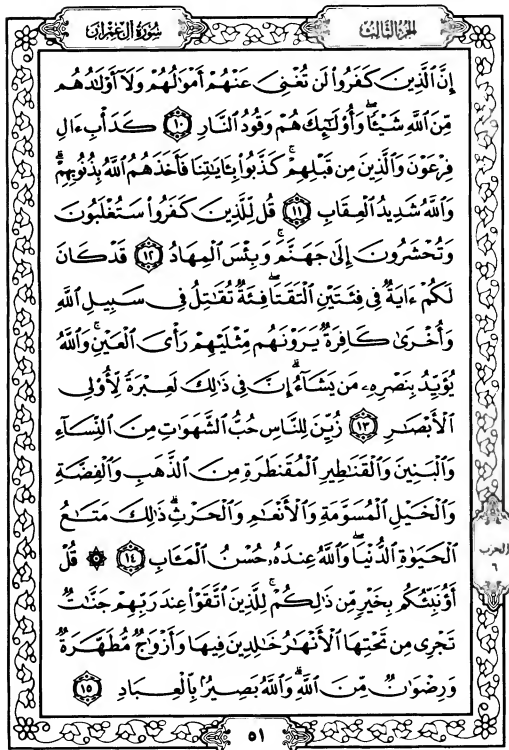 سُورَةُ آلِ عِمْرَانَ
الجُزْءُ الثَّالِثُ
إِنَّ ٱلَّذِينَ كَفَرُوا۟ لَن تُغْنِىَ عَنْهُمْ أَمْوَٰلُهُمْ وَلَآ أَوْلَـٰدُهُم
مِّنَ ٱللَّهِ شَيْـًٔا ۖ وَأُو۟لَـٰٓئِكَ هُمْ وَقُودُ ٱلنَّارِ ١٠ كَدَأْبِ ءَالِ
فِرْعَوْنَ وَٱلَّذِينَ مِن قَبْلِهِمْ ۚ كَذَّبُوا۟ بِـَٔايَـٰتِنَا فَأَخَذَهُمُ ٱللَّهُ بِذُنُوبِهِمْ ۗ
وَٱللَّهُ شَدِيدُ ٱلْعِقَابِ ١١ قُل لِّلَّذِينَ كَفَرُوا۟ سَتُغْلَبُونَ
وَتُحْشَرُونَ إِلَىٰ جَهَنَّمَ ۚ وَبِئْسَ ٱلْمِهَادُ ١٢ قَدْ كَانَ
لَكُمْ ءَايَةٌ فِى فِئَتَيْنِ ٱلْتَقَتَا ۖ فِئَةٌ تُقَـٰتِلُ فِى سَبِيلِ ٱللَّهِ
وَأُخْرَىٰ كَافِرَةٌ يَرَوْنَهُم مِّثْلَيْهِمْ رَأْىَ ٱلْعَيْنِ ۚ وَٱللَّهُ
يُؤَيِّدُ بِنَصْرِهِۦ مَن يَشَآءُ ۗ إِنَّ فِى ذَٰلِكَ لَعِبْرَةً لِّأُو۟لِى
ٱلْأَبْصَـٰرِ ١٣ زُيِّنَ لِلنَّاسِ حُبُّ ٱلشَّهَوَٰتِ مِنَ ٱلنِّسَآءِ
وَٱلْبَنِينَ وَٱلْقَنَـٰطِيرِ ٱلْمُقَنطَرَةِ مِنَ ٱلذَّهَبِ وَٱلْفِضَّةِ
وَٱلْخَيْلِ ٱلْمُسَوَّمَةِ وَٱلْأَنْعَـٰمِ وَٱلْحَرْثِ ۗ ذَٰلِكَ مَتَـٰعُ
ٱلْحَيَوٰةِ ٱلدُّنْيَا ۖ وَٱللَّهُ عِندَهُۥ حُسْنُ ٱلْمَـَٔابِ ١٤ ۞ قُلْ
أَؤُنَبِّئُكُم بِخَيْرٍ مِّن ذَٰلِكُمْ ۚ لِلَّذِينَ ٱتَّقَوْا۟ عِندَ رَبِّهِمْ جَنَّـٰتٌ
تَجْرِى مِن تَحْتِهَا ٱلْأَنْهَـٰرُ خَـٰلِدِينَ فِيهَا وَأَزْوَٰجٌ مُّطَهَّرَةٌ
وَرِضْوَٰنٌ مِّنَ ٱللَّهِ ۗ وَٱللَّهُ بَصِيرٌۢ بِٱلْعِبَادِ ١٥
الحزب
٦
٥١